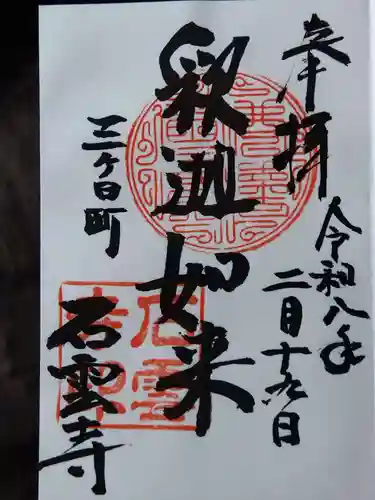 奉拝
令和八年
二月十九日
釈迦如来
三ヶ日町
石雲寺